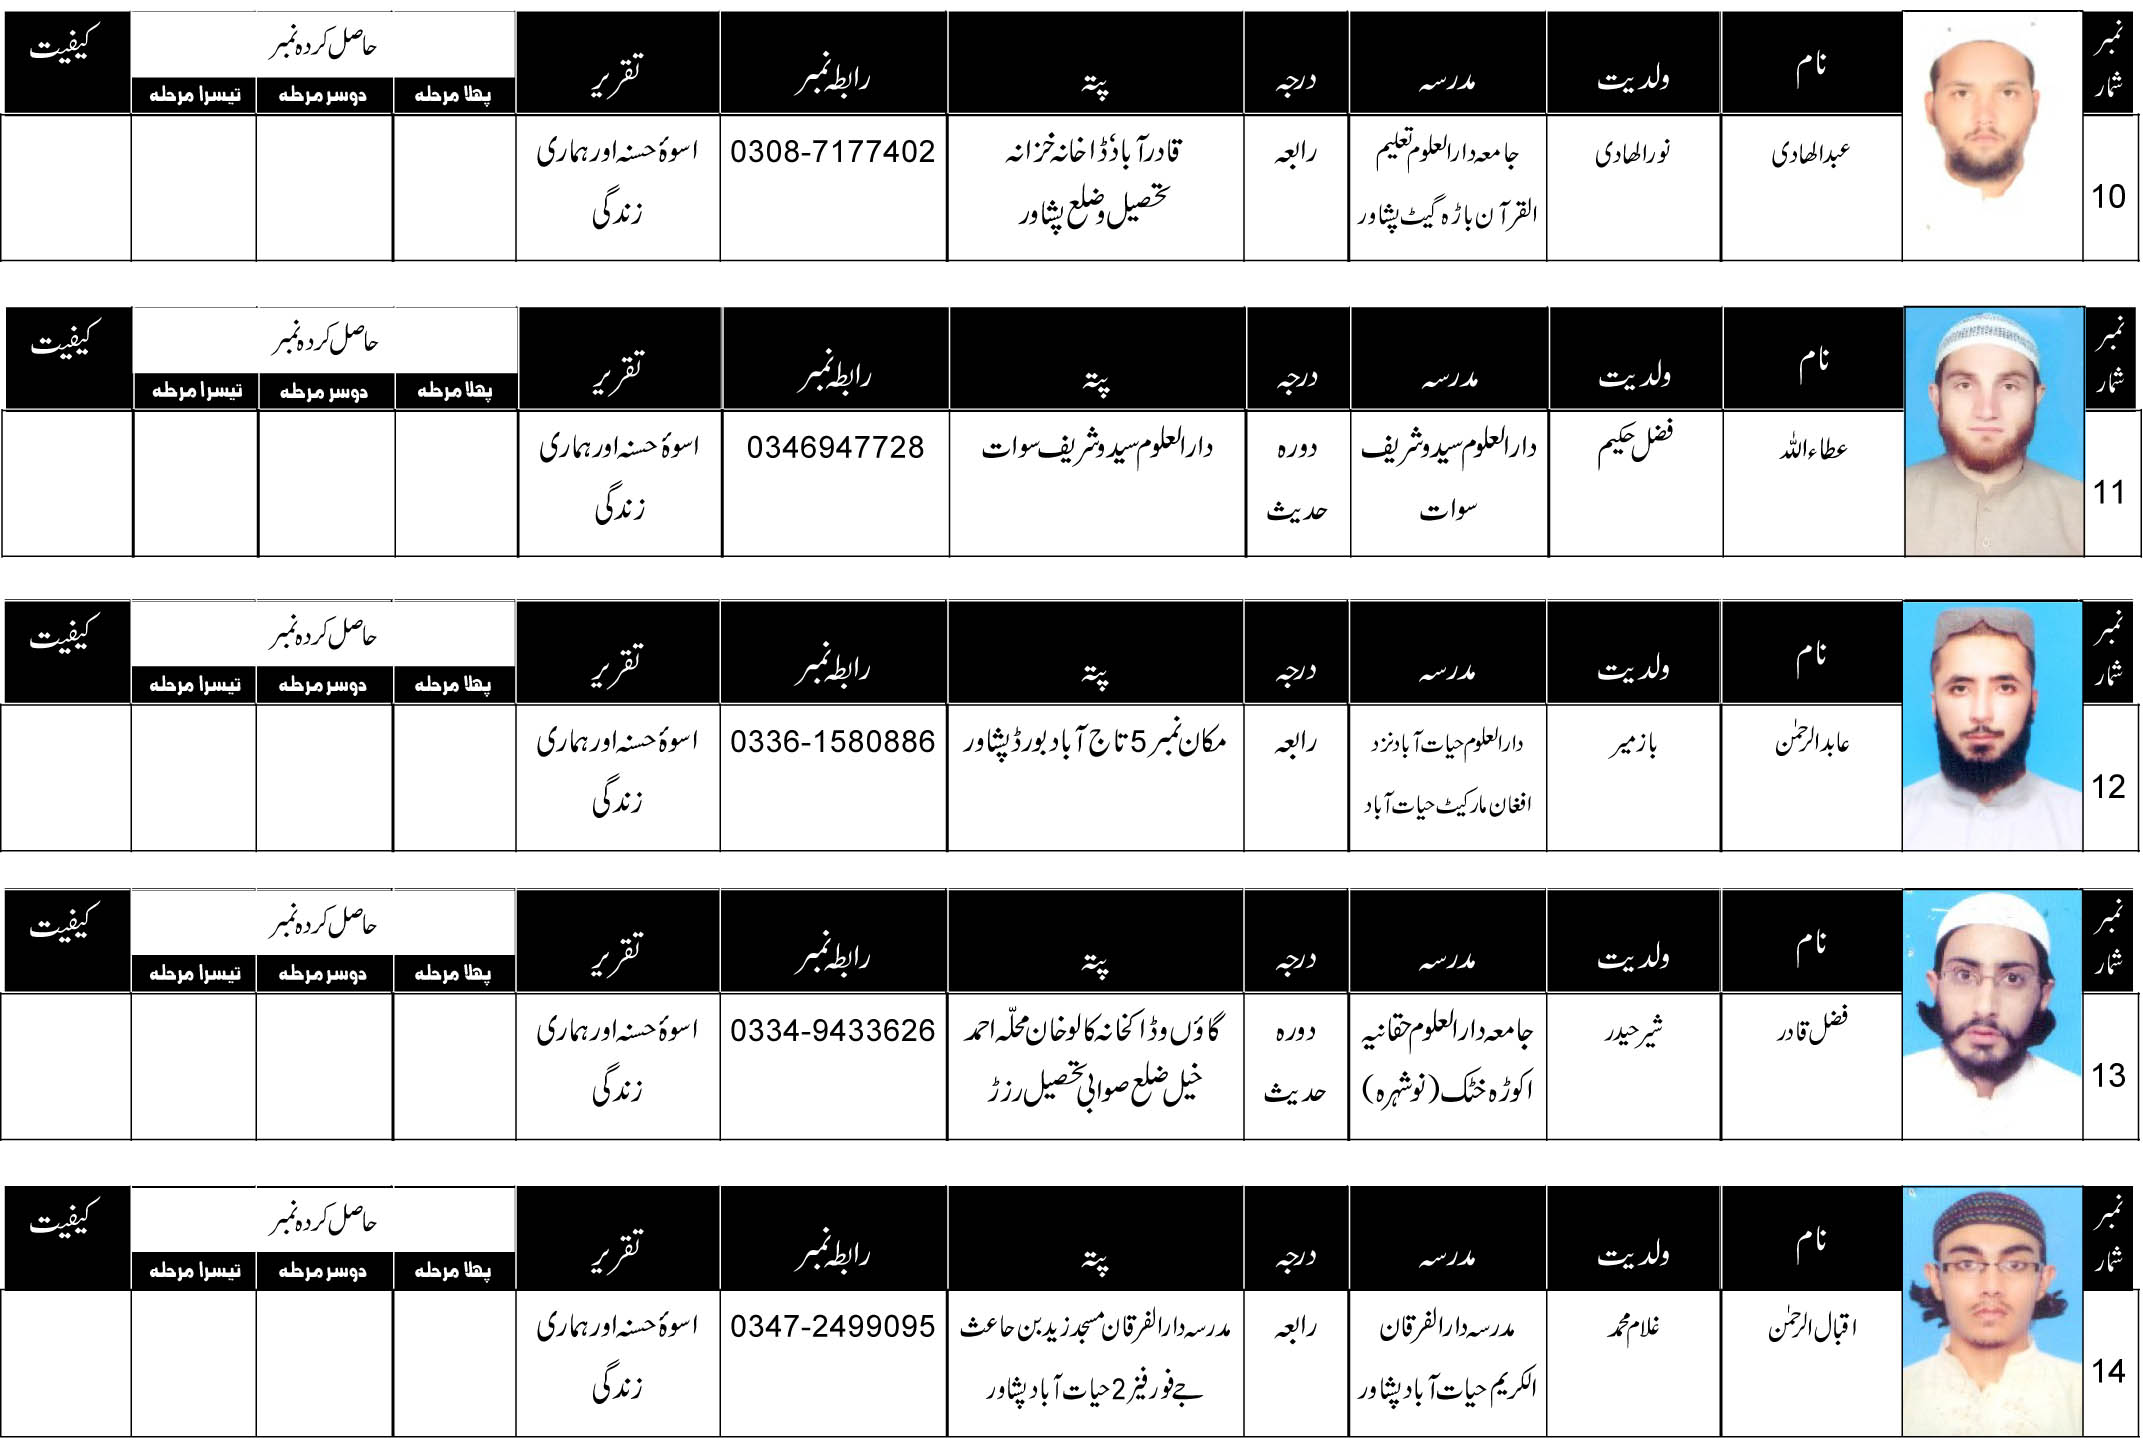 نمبر شمار
نام
ولدیت
مدرسہ
درجہ
پتہ
رابطہ نمبر
تقریر
حاصل کردہ نمبر
پہلا مرحلہ
دوسر مرحلہ
تیسرا مرحلہ
کیفیت
10
عبدالھادی
نورالھادی
جامعہ دارالعلوم تعلیم
القرآن باڑہ گیٹ پشاور
رابعہ
قادرآباد ڈاخانہ خزانہ
تحصیل وضلع پشاور
0308-7177402
اسوۂ حسنہ اور ہماری
زندگی
نمبر شمار
نام
ولدیت
مدرسہ
درجہ
پتہ
رابطہ نمبر
تقریر
حاصل کردہ نمبر
پہلا مرحلہ
دوسر مرحلہ
تیسرا مرحلہ
کیفیت
11
عطاءاللہ
فضل حکیم
دارالعلوم سیدوشریف
سوات
دورہ
حدیث
دارالعلوم سیدوشریف سوات
0346947728
اسوۂ حسنہ اور ہماری
زندگی
نمبر شمار
نام
ولدیت
مدرسہ
درجہ
پتہ
رابطہ نمبر
تقریر
حاصل کردہ نمبر
پہلا مرحلہ
دوسر مرحلہ
تیسرا مرحلہ
کیفیت
12
عابدالرحمٰن
بازمیر
دارالعلوم حیات آباد نزد
افغان مارکیٹ حیات آباد
رابعہ
مکان نمبر 5 تاج آباد بورڈ پشاور
0336-1580886
اسوۂ حسنہ اور ہماری
زندگی
نمبر شمار
نام
ولدیت
مدرسہ
درجہ
پتہ
رابطہ نمبر
تقریر
حاصل کردہ نمبر
پہلا مرحلہ
دوسر مرحلہ
تیسرا مرحلہ
کیفیت
13
فضل قادر
شیر حیدر
جامعہ دارالعلوم حقانیہ
اکوڑہ خٹک (نوشہرہ)
دورہ
حدیث
گاؤں وڈاکخانہ کالوخان محلّہ احمد
خیل ضلع صوابی تحصیل رزڑ
0334-9433626
اسوۂ حسنہ اور ہماری
زندگی
نمبر شمار
نام
ولدیت
مدرسہ
درجہ
پتہ
رابطہ نمبر
تقریر
حاصل کردہ نمبر
پہلا مرحلہ
دوسر مرحلہ
تیسرا مرحلہ
کیفیت
14
اقبال الرحمٰن
غلام محمد
مدرسہ دارالفرقان
الکریم حیات آباد پشاور
رابعہ
مدرسہ دارالفرقان مسجد زید بن حاعث
جے فور فیز 2 حیات آباد پشاور
0347-2499095
اسوۂ حسنہ اور ہماری
زندگی